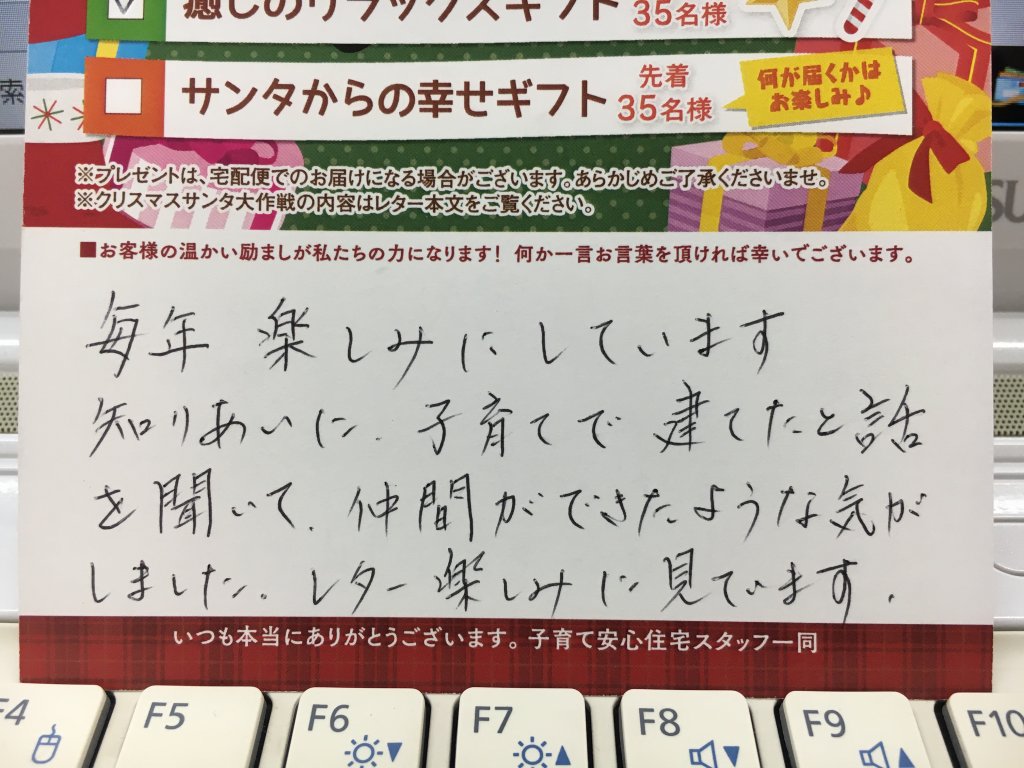 癒しのリラックスギフト 35名様
サンタからの幸せギフト 先着 35名様
何が届くかは
お楽しみ♪
※プレゼントは、宅配便でのお届けになる場合がございます。あらかじめご了承くださいませ。
※クリスマスサンタ大作戦の内容はレター本文をご覧ください。
■お客様の温かい励ましが私たちの力になります! 何か一言お言葉を頂ければ幸いでございます。
毎年 楽しみにしています
知りあいに、子育てで建てたと話
を聞いて、仲間ができたような気が
しました。レター楽しみに見ています。
いつも本当にありがとうございます。子育て安心住宅スタッフ一同
索
SU
F4 F5 F6 F7 F8 F9 F10